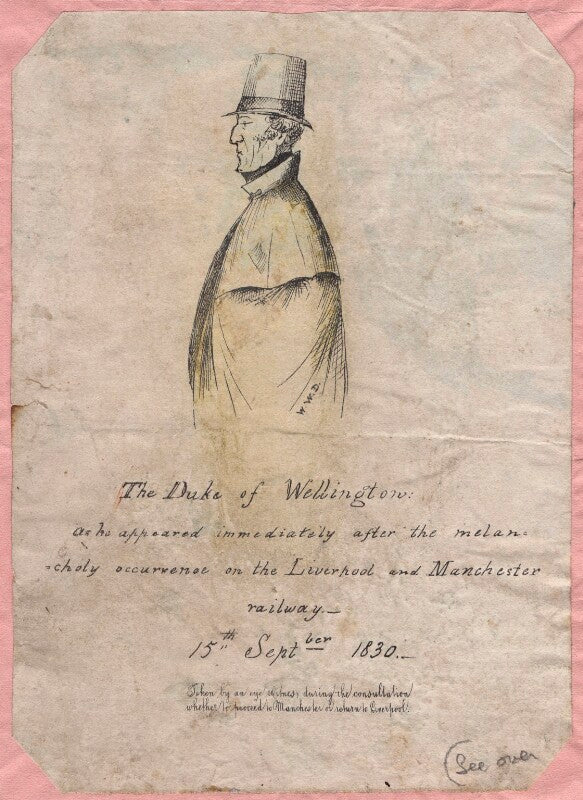 W. W. D.
The Duke of Wellington:
as he appeared immediately after the melan-
-choly occurrence on the Liverpool and Manchester
railway._
15th Septber 1830._
Taken by an eye witness, during the consultation
whether to proceed to Manchester or return to Liverpool.
(See over